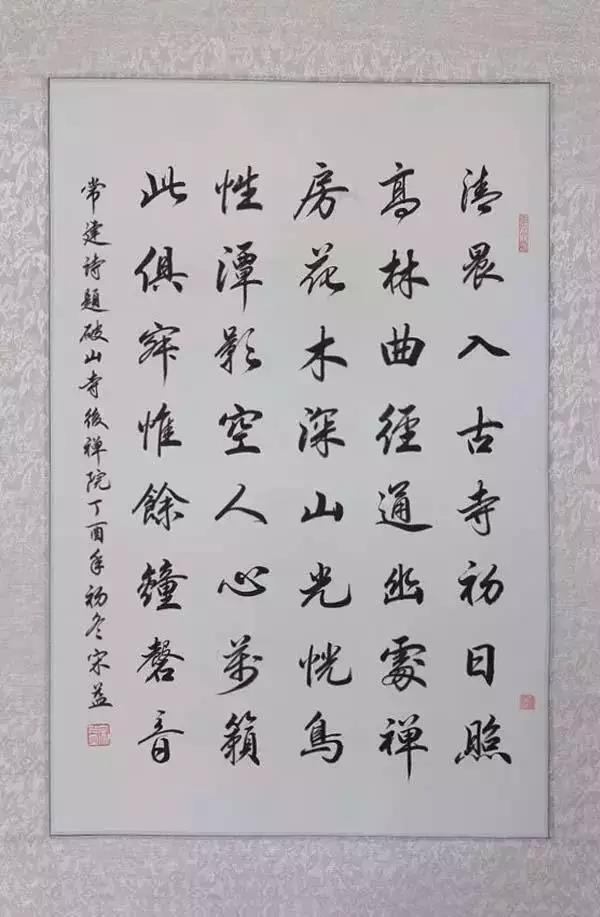 清晨入古寺初日照
高林曲徑通幽處禅
房花木深山光悦鳥
性潭影空人心萬籟
此俱寂惟餘鐘磬音
常建詩題破山寺後禅院丁酉年初冬宋益